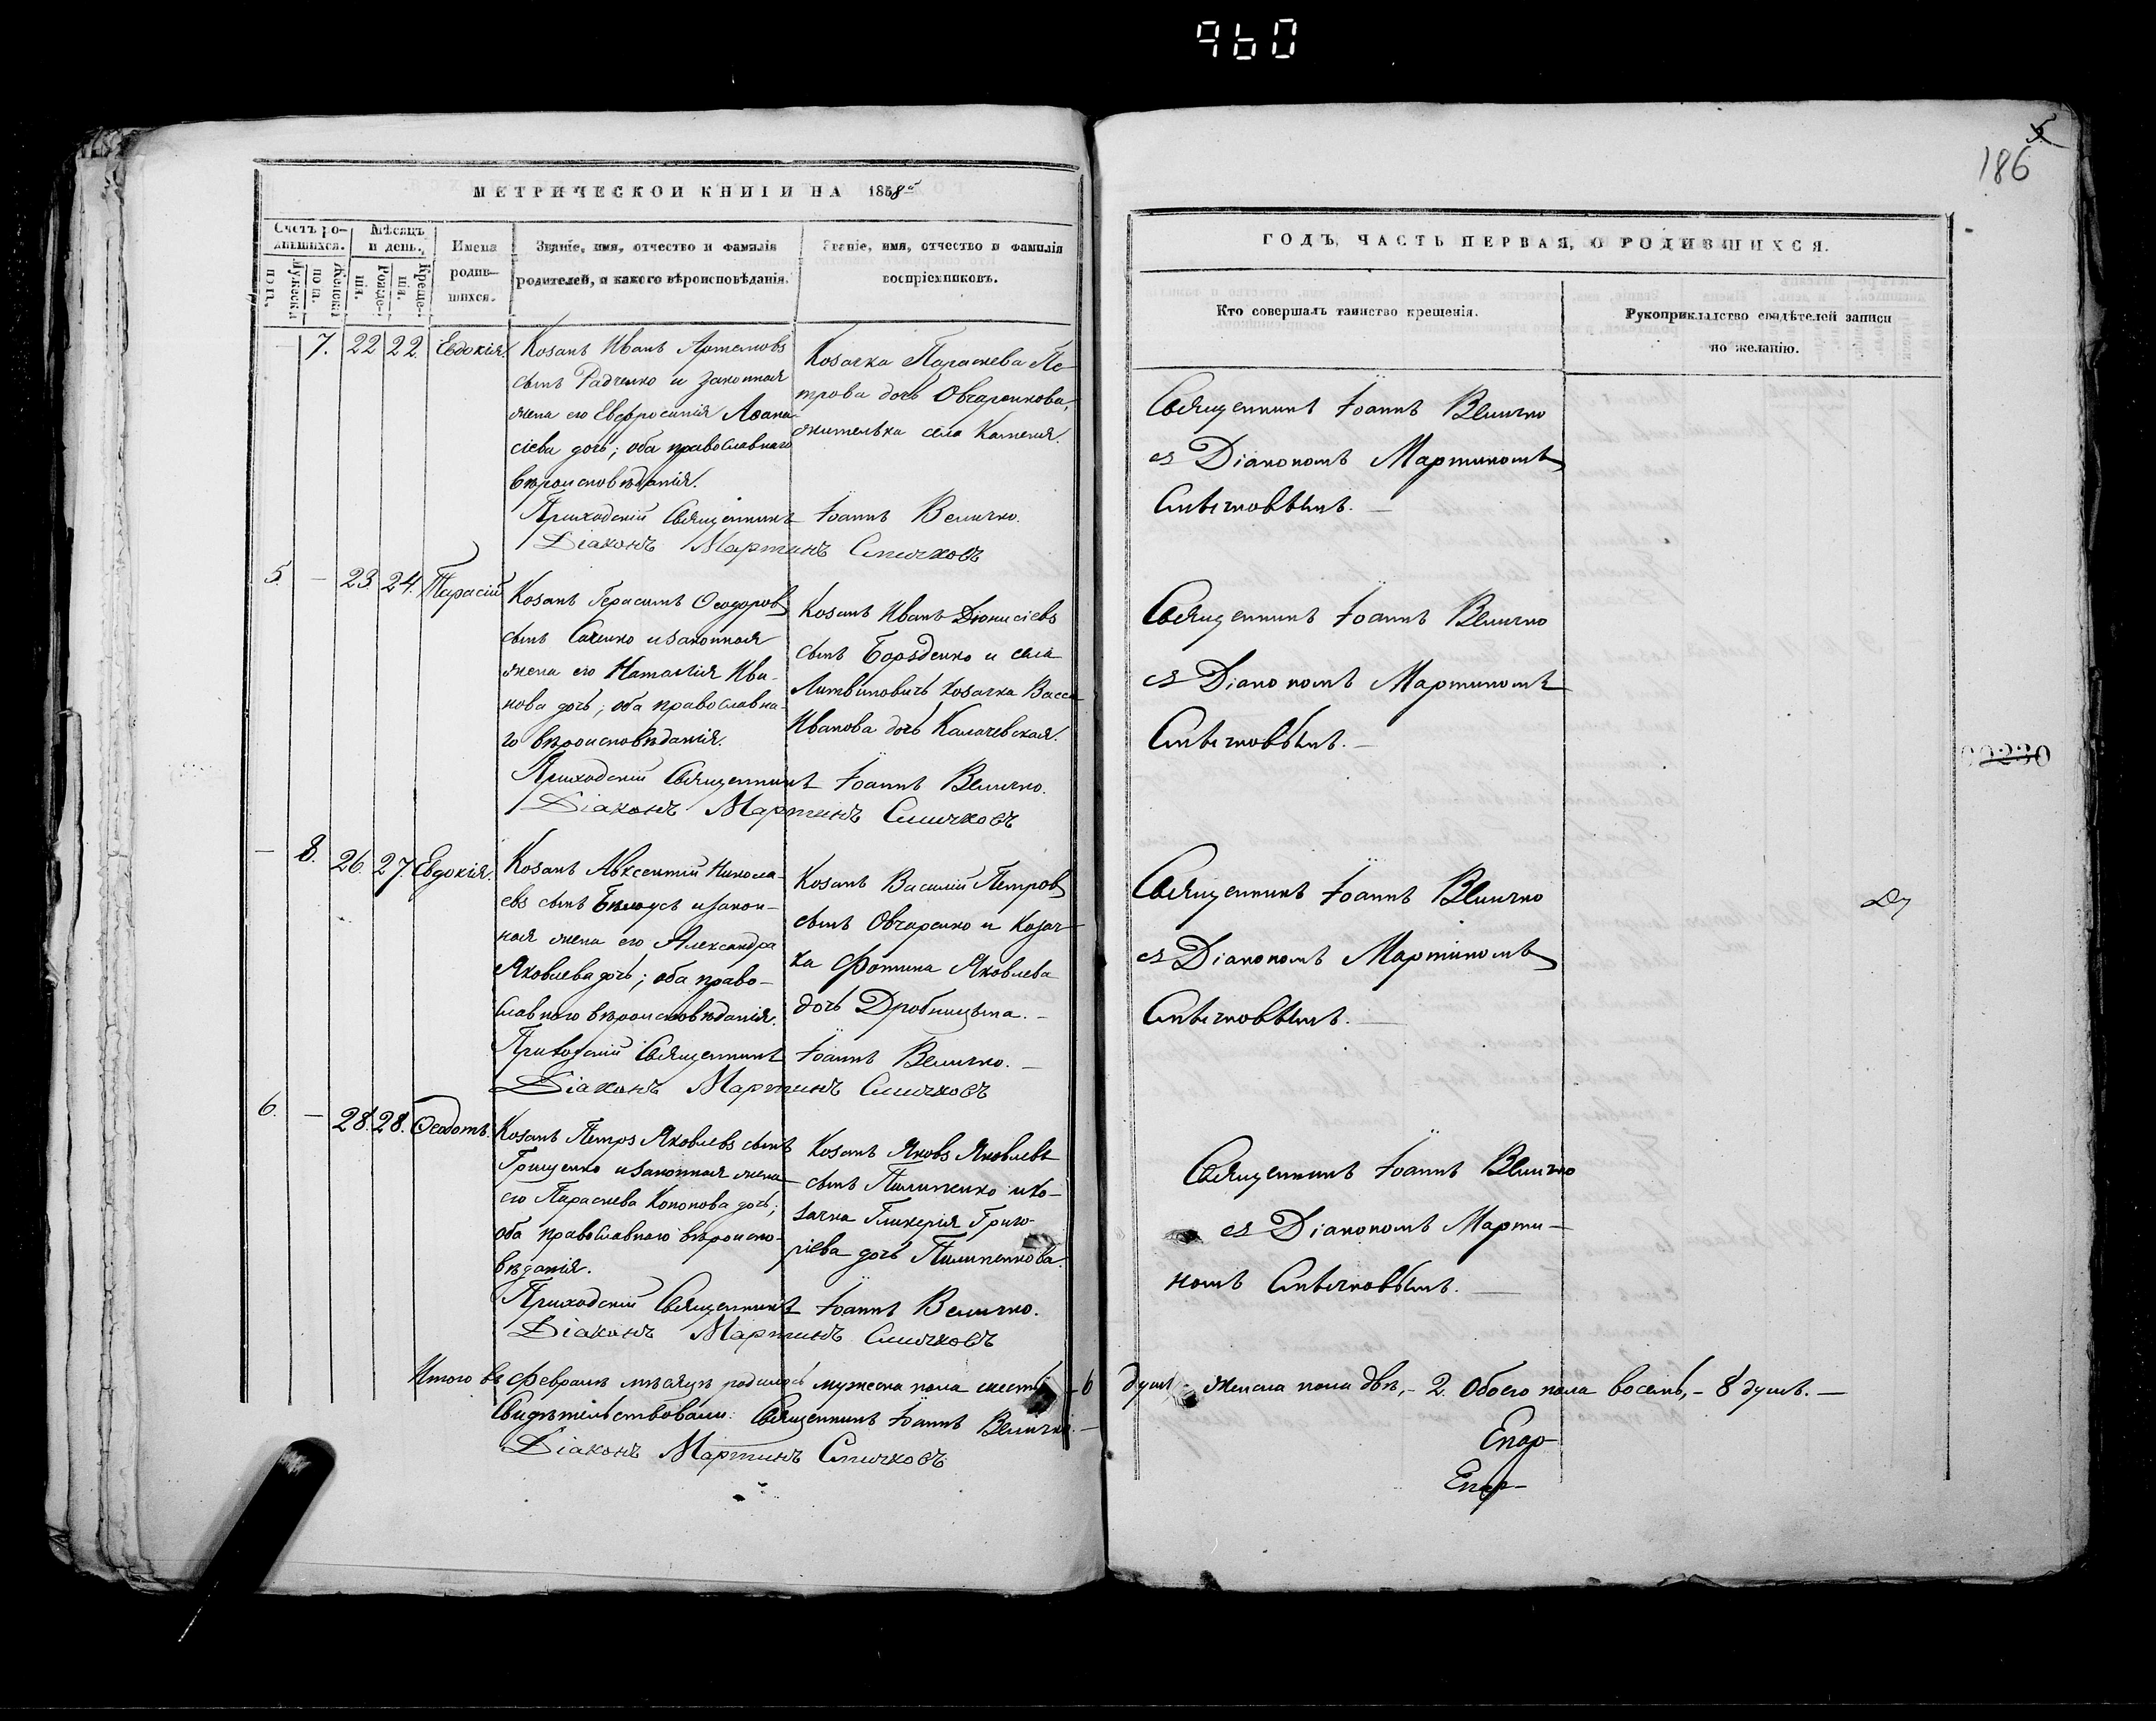 960
5
186
МЕТРИЧЕСКОЙ КНИГИ НА 1858й
Счетъ родившихся.
Мѣсяцъ и день.
Мужеска пола.
Женска пола.
Рожденія.
Крещенія.
Имена родившихся.
Званіе, имя, отчество и фамилія родителей, и какого вѣроисповѣданія.
Званіе, имя, отчество и фамилія воспріемниковъ.
ГОДЪ, ЧАСТЬ ПЕРВАЯ, О РОДИВШИХСЯ.
Кто совершалъ таинство крещенія.
Рукоприкладство свидѣтелей записи по желанію.
— 7. 22 22. Евдокія.
Козакъ Иванъ Артемовъ
сынъ Радченко и законная
жена его Евфросинія Аѳана-
сіева дочь; оба православнаго
вѣроисповѣданія.
Козачка Параскева Пе-
трова дочь Овчаренкова,
жителька села Каменя.
Приходскій Священникъ Іоаннъ Величко.
Діаконъ Мартинъ Спичковъ
Священникъ Іоаннъ Величко
съ Діакономъ Мартиномъ
Спичковымъ. —
5. — 23. 24. Тарасій
Козакъ Герасимъ Ѳеодоровъ
сынъ Саченко и законная
жена его Наталія Ива-
нова дочь; оба православна-
го вѣроисповѣданія.
Козакъ Иванъ Діонисіевъ
сынъ Борзденко и села
Литвиновичь козачка Васса
Иванова дочь Калачевская.
Приходскій Священникъ Іоаннъ Величко.
Діаконъ Мартинъ Спичковъ
Священникъ Іоаннъ Величко
съ Діакономъ Мартиномъ
Спичковымъ. —
00230
— 8. 26. 27. Евдокія.
Козакъ Авксентій Никола-
евъ сынъ Бѣлоусъ и закон-
ная жена его Александра
Яковлева дочь; оба право-
славнаго вѣроисповѣданія.
Козакъ Василій Петровъ
сынъ Овчаренко и Козач-
ка Фотина Яковлева
дочь Дробницына. —
Приходскій Священникъ Іоаннъ Величко. —
Діаконъ Мартинъ Спичковъ
Священникъ Іоаннъ Величко
съ Діакономъ Мартиномъ
Спичковымъ. —
6. — 28. 28. Ѳеодотъ.
Козакъ Петръ Яковлевъ сынъ
Грищенко и законная жена
его Параскева Кононова дочь;
оба православнаго вѣроиспо-
вѣданія.
Козакъ Яковъ Яковлевъ
сынъ Пилипенко и ко-
зачка Гликерія Григо-
ріева дочь Пилипенкова.
Приходскій Священникъ Іоаннъ Величко.
Діаконъ Мартинъ Спичковъ
Священникъ Іоаннъ Величко
съ Діакономъ Марти-
номъ Спичковымъ. —
Итого въ Февралѣ мѣсяцѣ родилось мужеска пола шесть - 6 душъ - женска пола двѣ, - 2. Обоего пола восемь, - 8 душъ. —
Свидѣтельствовали: Священникъ Іоаннъ Величко. —
Діаконъ Мартинъ Спичковъ